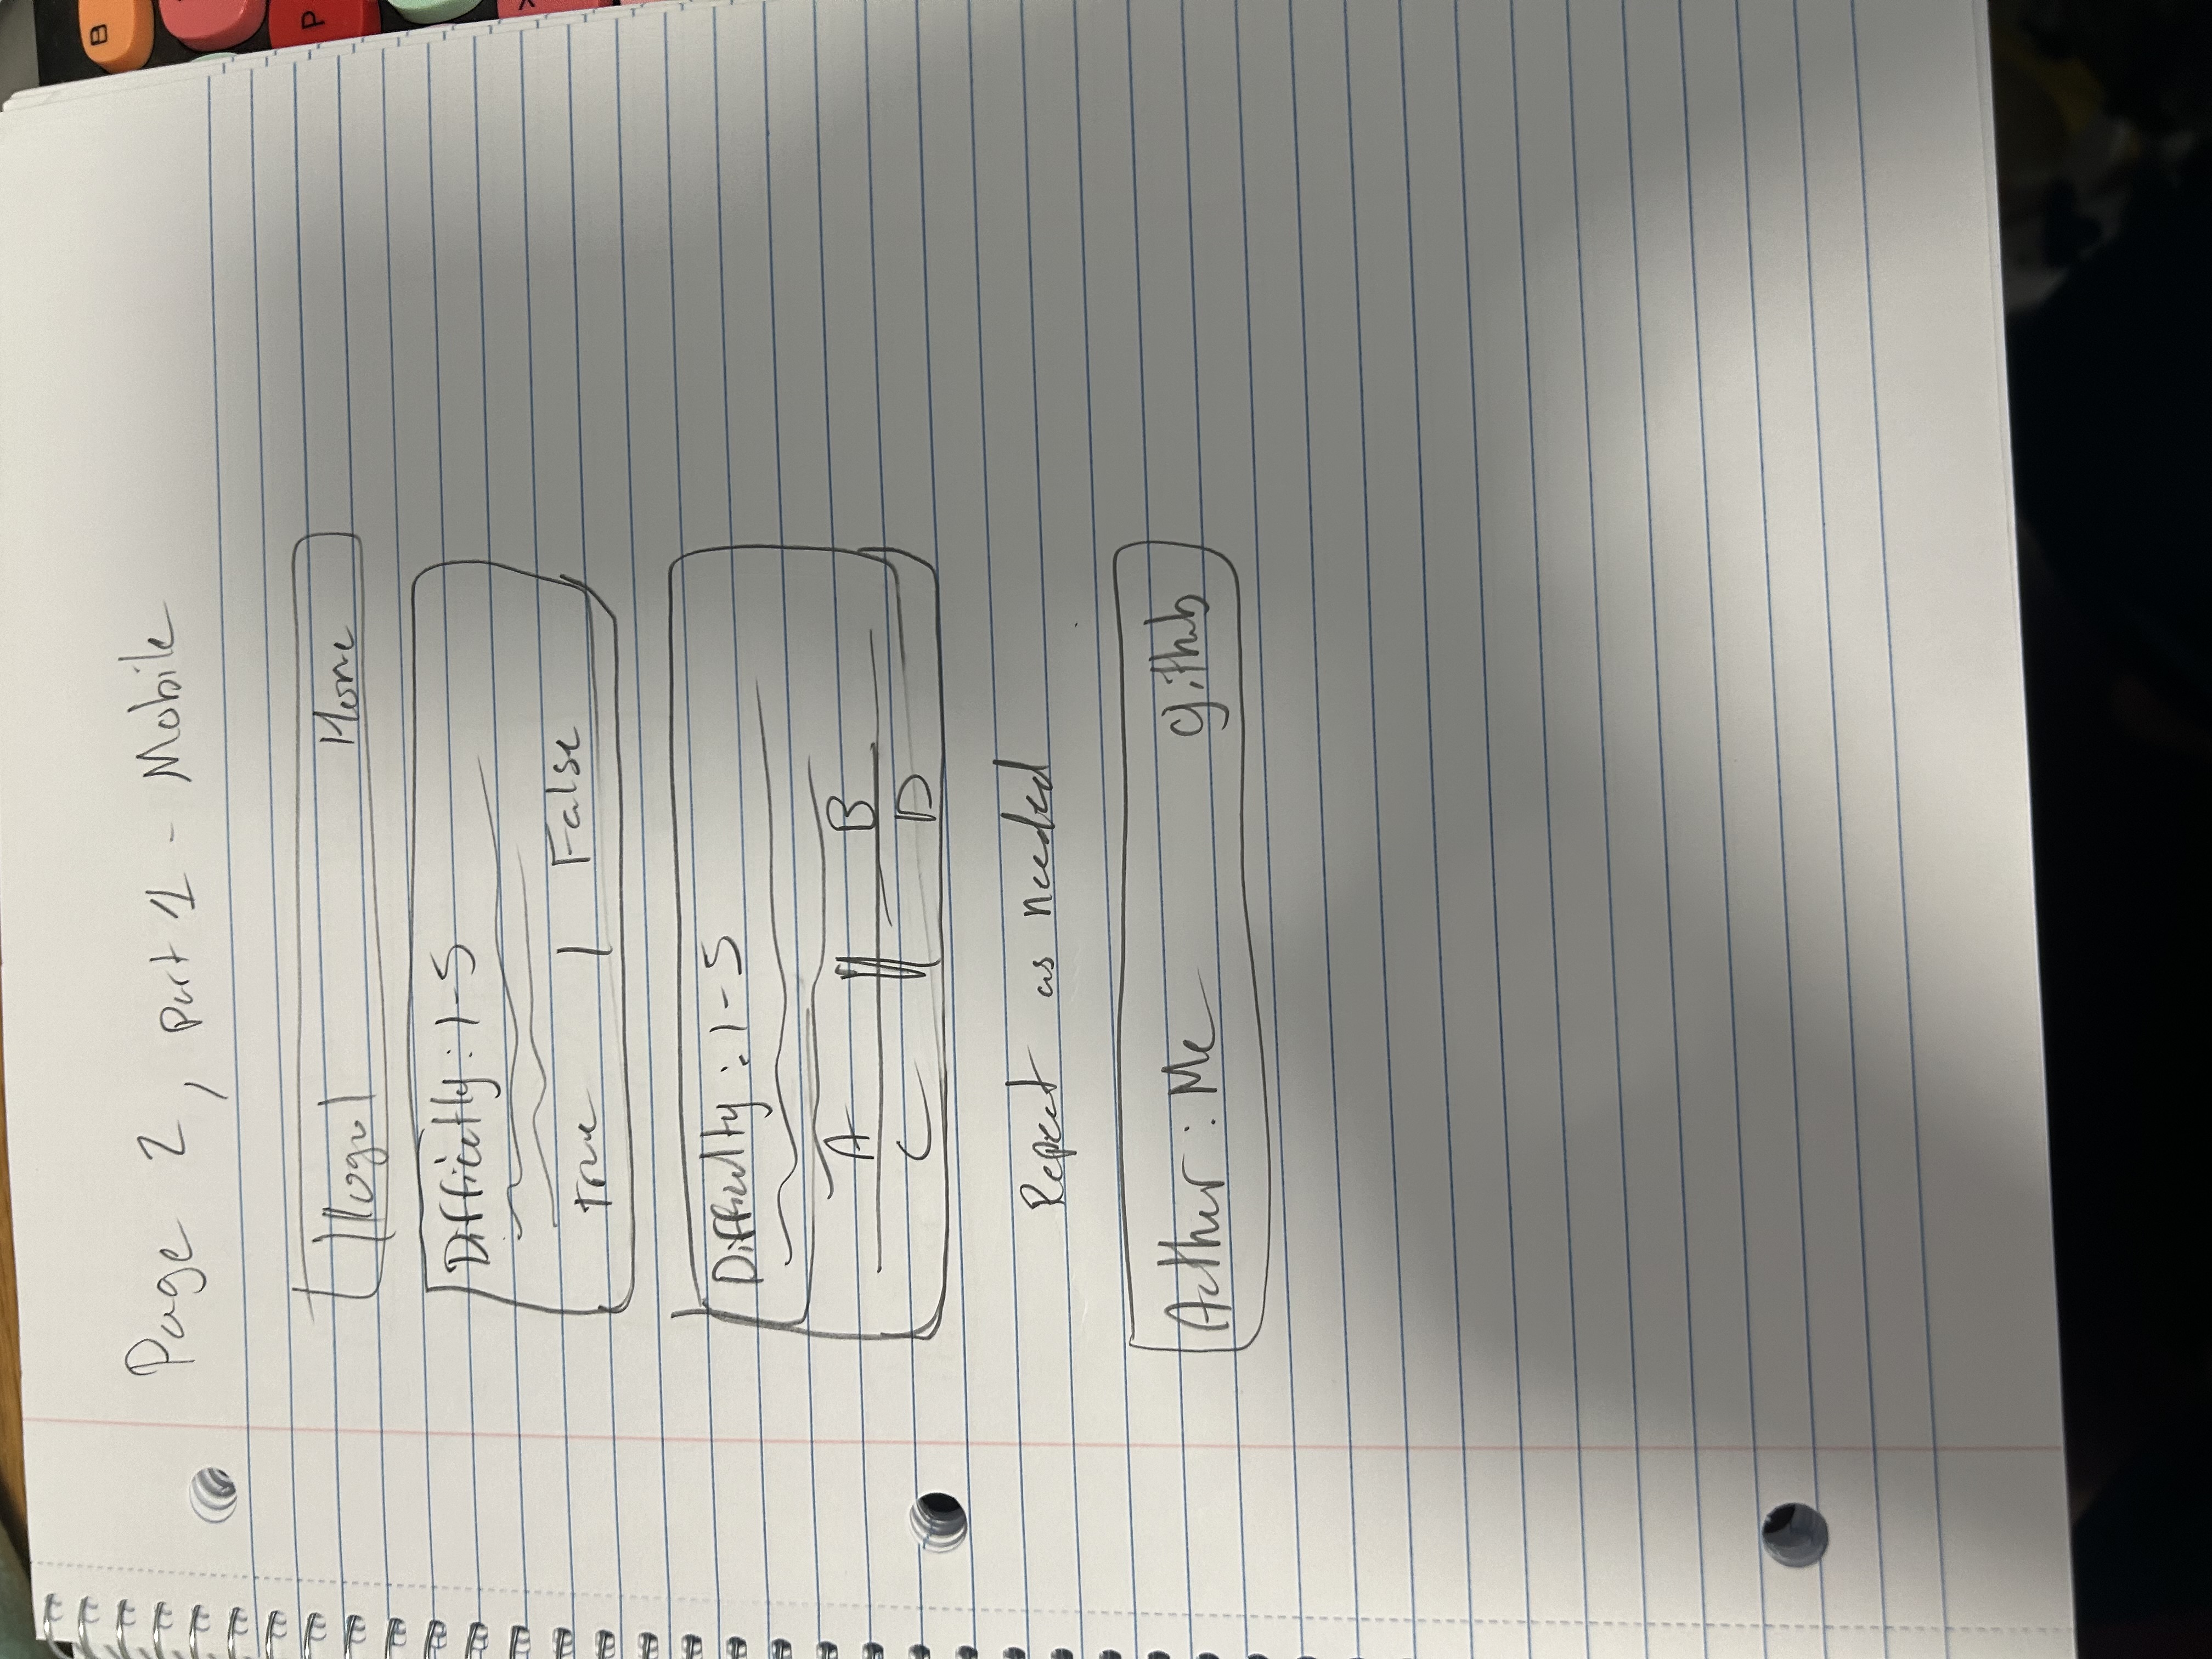 Page 2, part 1 - Mobile
logo Home
Difficulty: 1-5
true | False
Difficulty: 1-5
A B
C D
Repeat as needed
Author: Me github
B
P